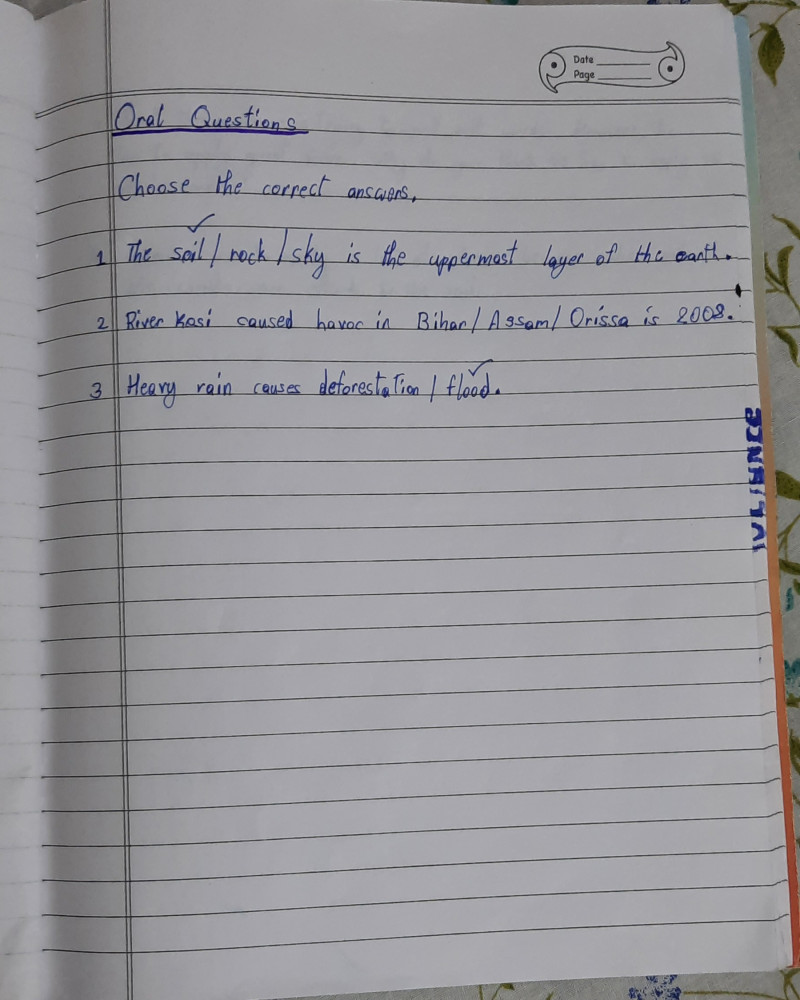 Date
Page
Oral Questions
Choose the correct answers.
1 The soil / rock / sky is the uppermost layer of the earth.
2 River Kosi caused havoc in Bihar / Assam / Orissa is 2008.
3 Heavy rain causes deforestation / flood.